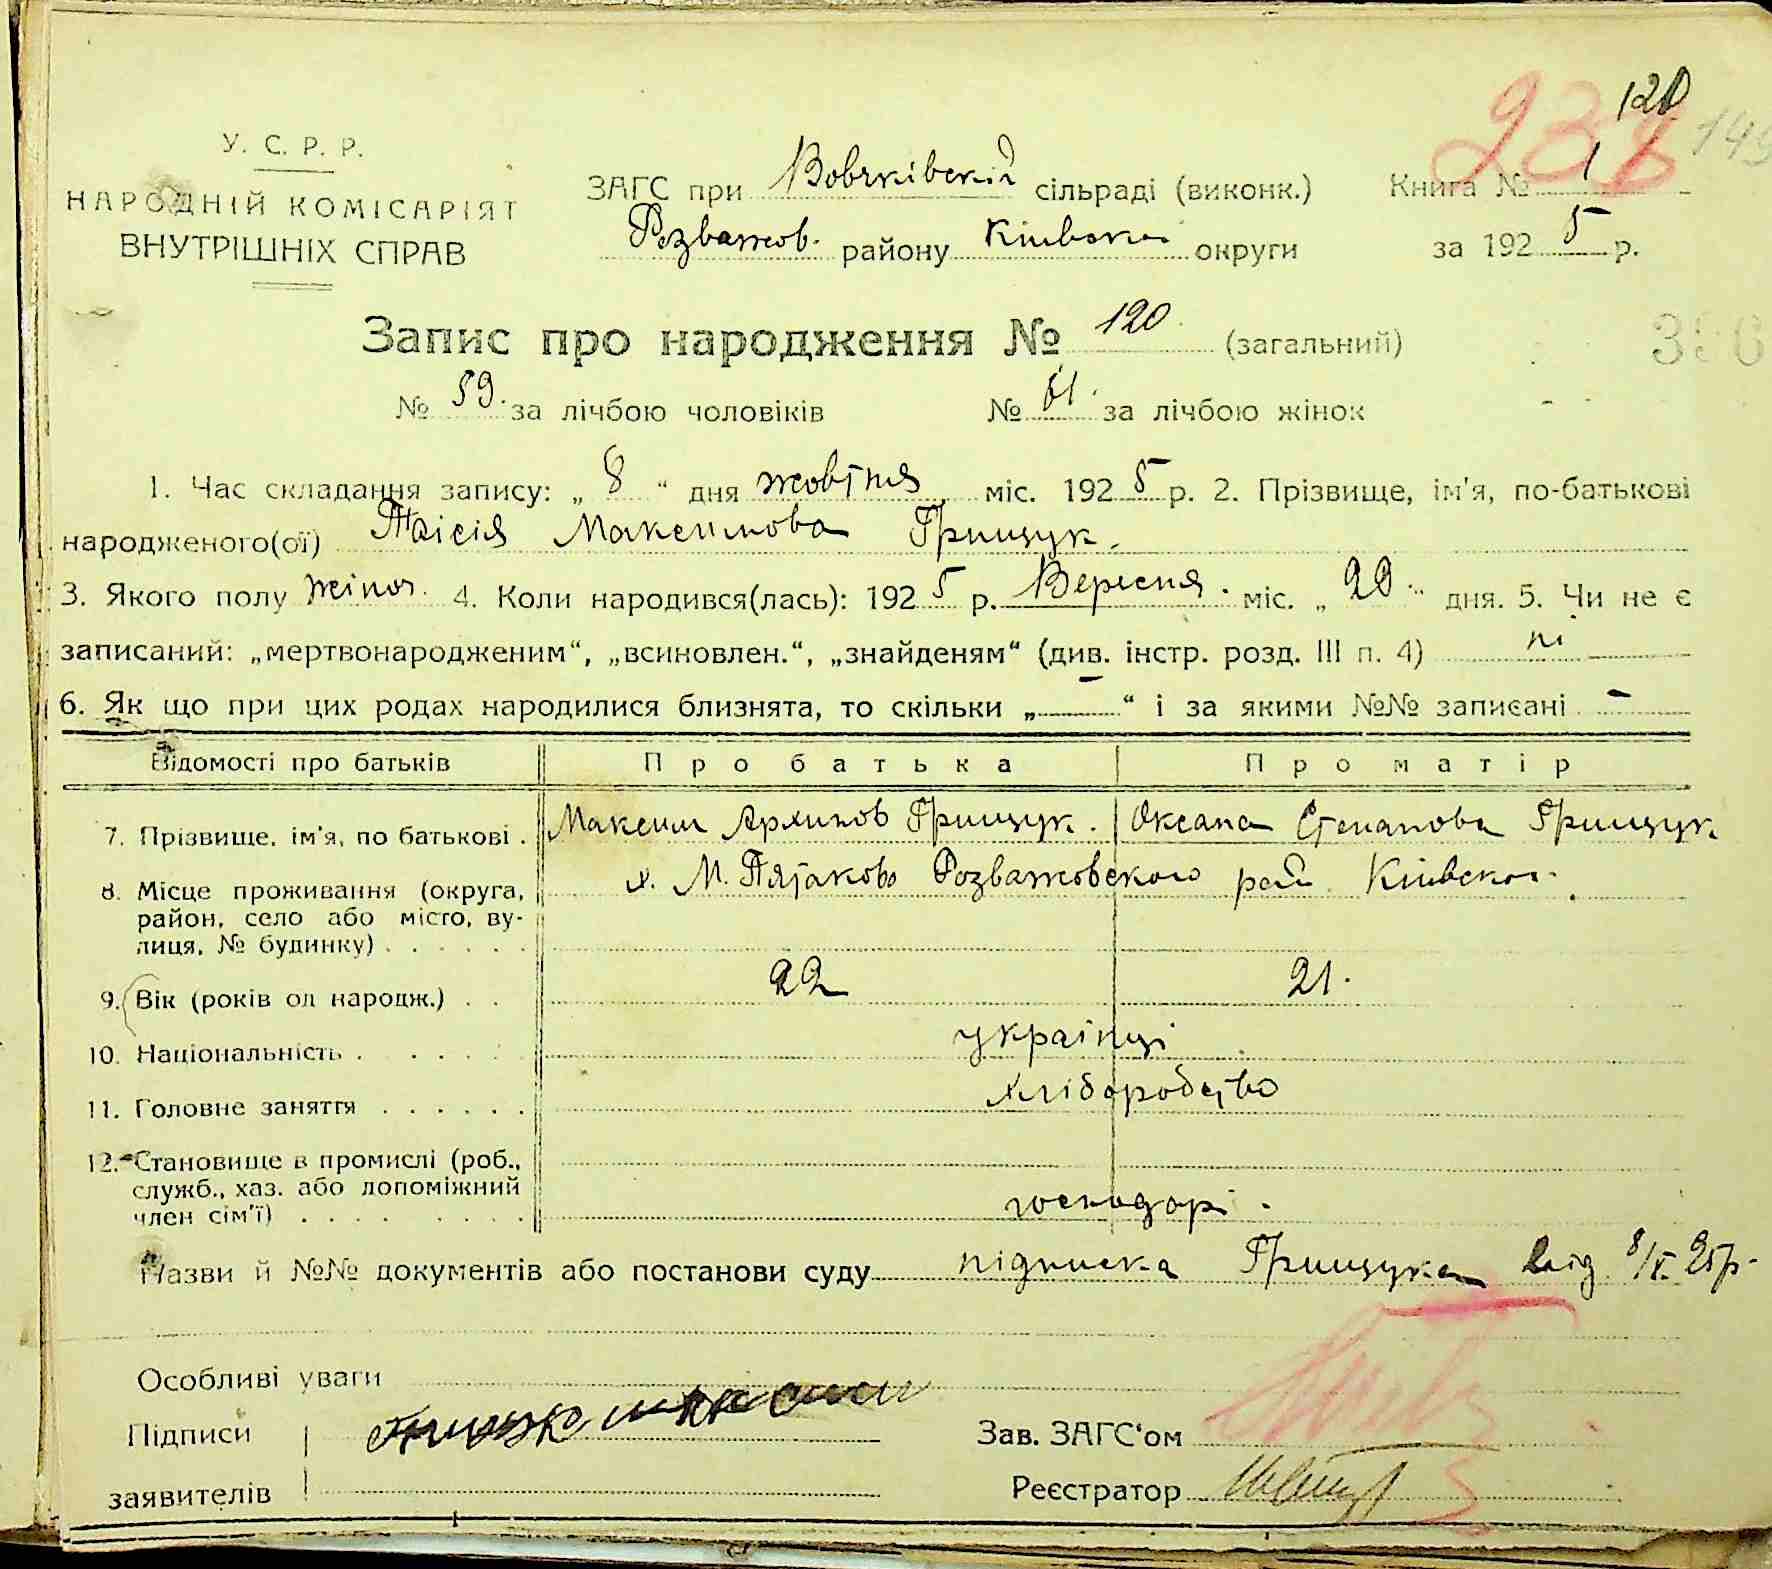 120
238
149
У. С. Р. Р.
НАРОДНІЙ КОМІСАРІЯТ
ВНУТРІШНІХ СПРАВ
ЗАГС при Вовчківскій сільраді (виконк.) Книга № 1
Розважов. району Київско округи за 1925 р.
Запис про народження № 120 (загальний)
№ 59. за лічбою чоловіків № 61. за лічбою жінок
1. Час складання запису: „ 8 “ дня жовтня міс. 1925 р. 2. Прізвище, ім'я, по-батькові
народженого(ої) Таісія Максимова Грищук.
3. Якого полу жіноч. 4. Коли народився(лась): 1925 р. Вересня. міс. „ 20 “ дня. 5. Чи не є
записаний: „мертвонародженим“, „всиновлен.“, „знайденям“ (див. інстр. розд. III п. 4) ні
6. Як що при цих родах народилися близнята, то скільки „ — “ і за якими №№ записані —
Відомості про батьків Про батька Про матір
7. Прізвище, ім'я, по батькові . Максим Архипов Грищук. Оксана Степанова Грищук
8. Місце проживання (округа, х. М. Пятаково Розважовского рай. Київско
район, село або місто, ву-
лиця, № будинку) . . . . . .
9. Вік (років од народж.) . . 22 21.
10. Національність . . . . . . українці
11. Головне заняття . . . . . . хліборобство
12. Становище в промислі (роб.,
служб., хаз. або допоміжний
член сім'ї) . . . . . . . . господарі.
Назви й №№ документів або постанови суду підписка Грищука від 8/X 25 р.
Особливі уваги
Підписи Грищук Максим Зав. ЗАГС'ом
заявителів Реєстратор